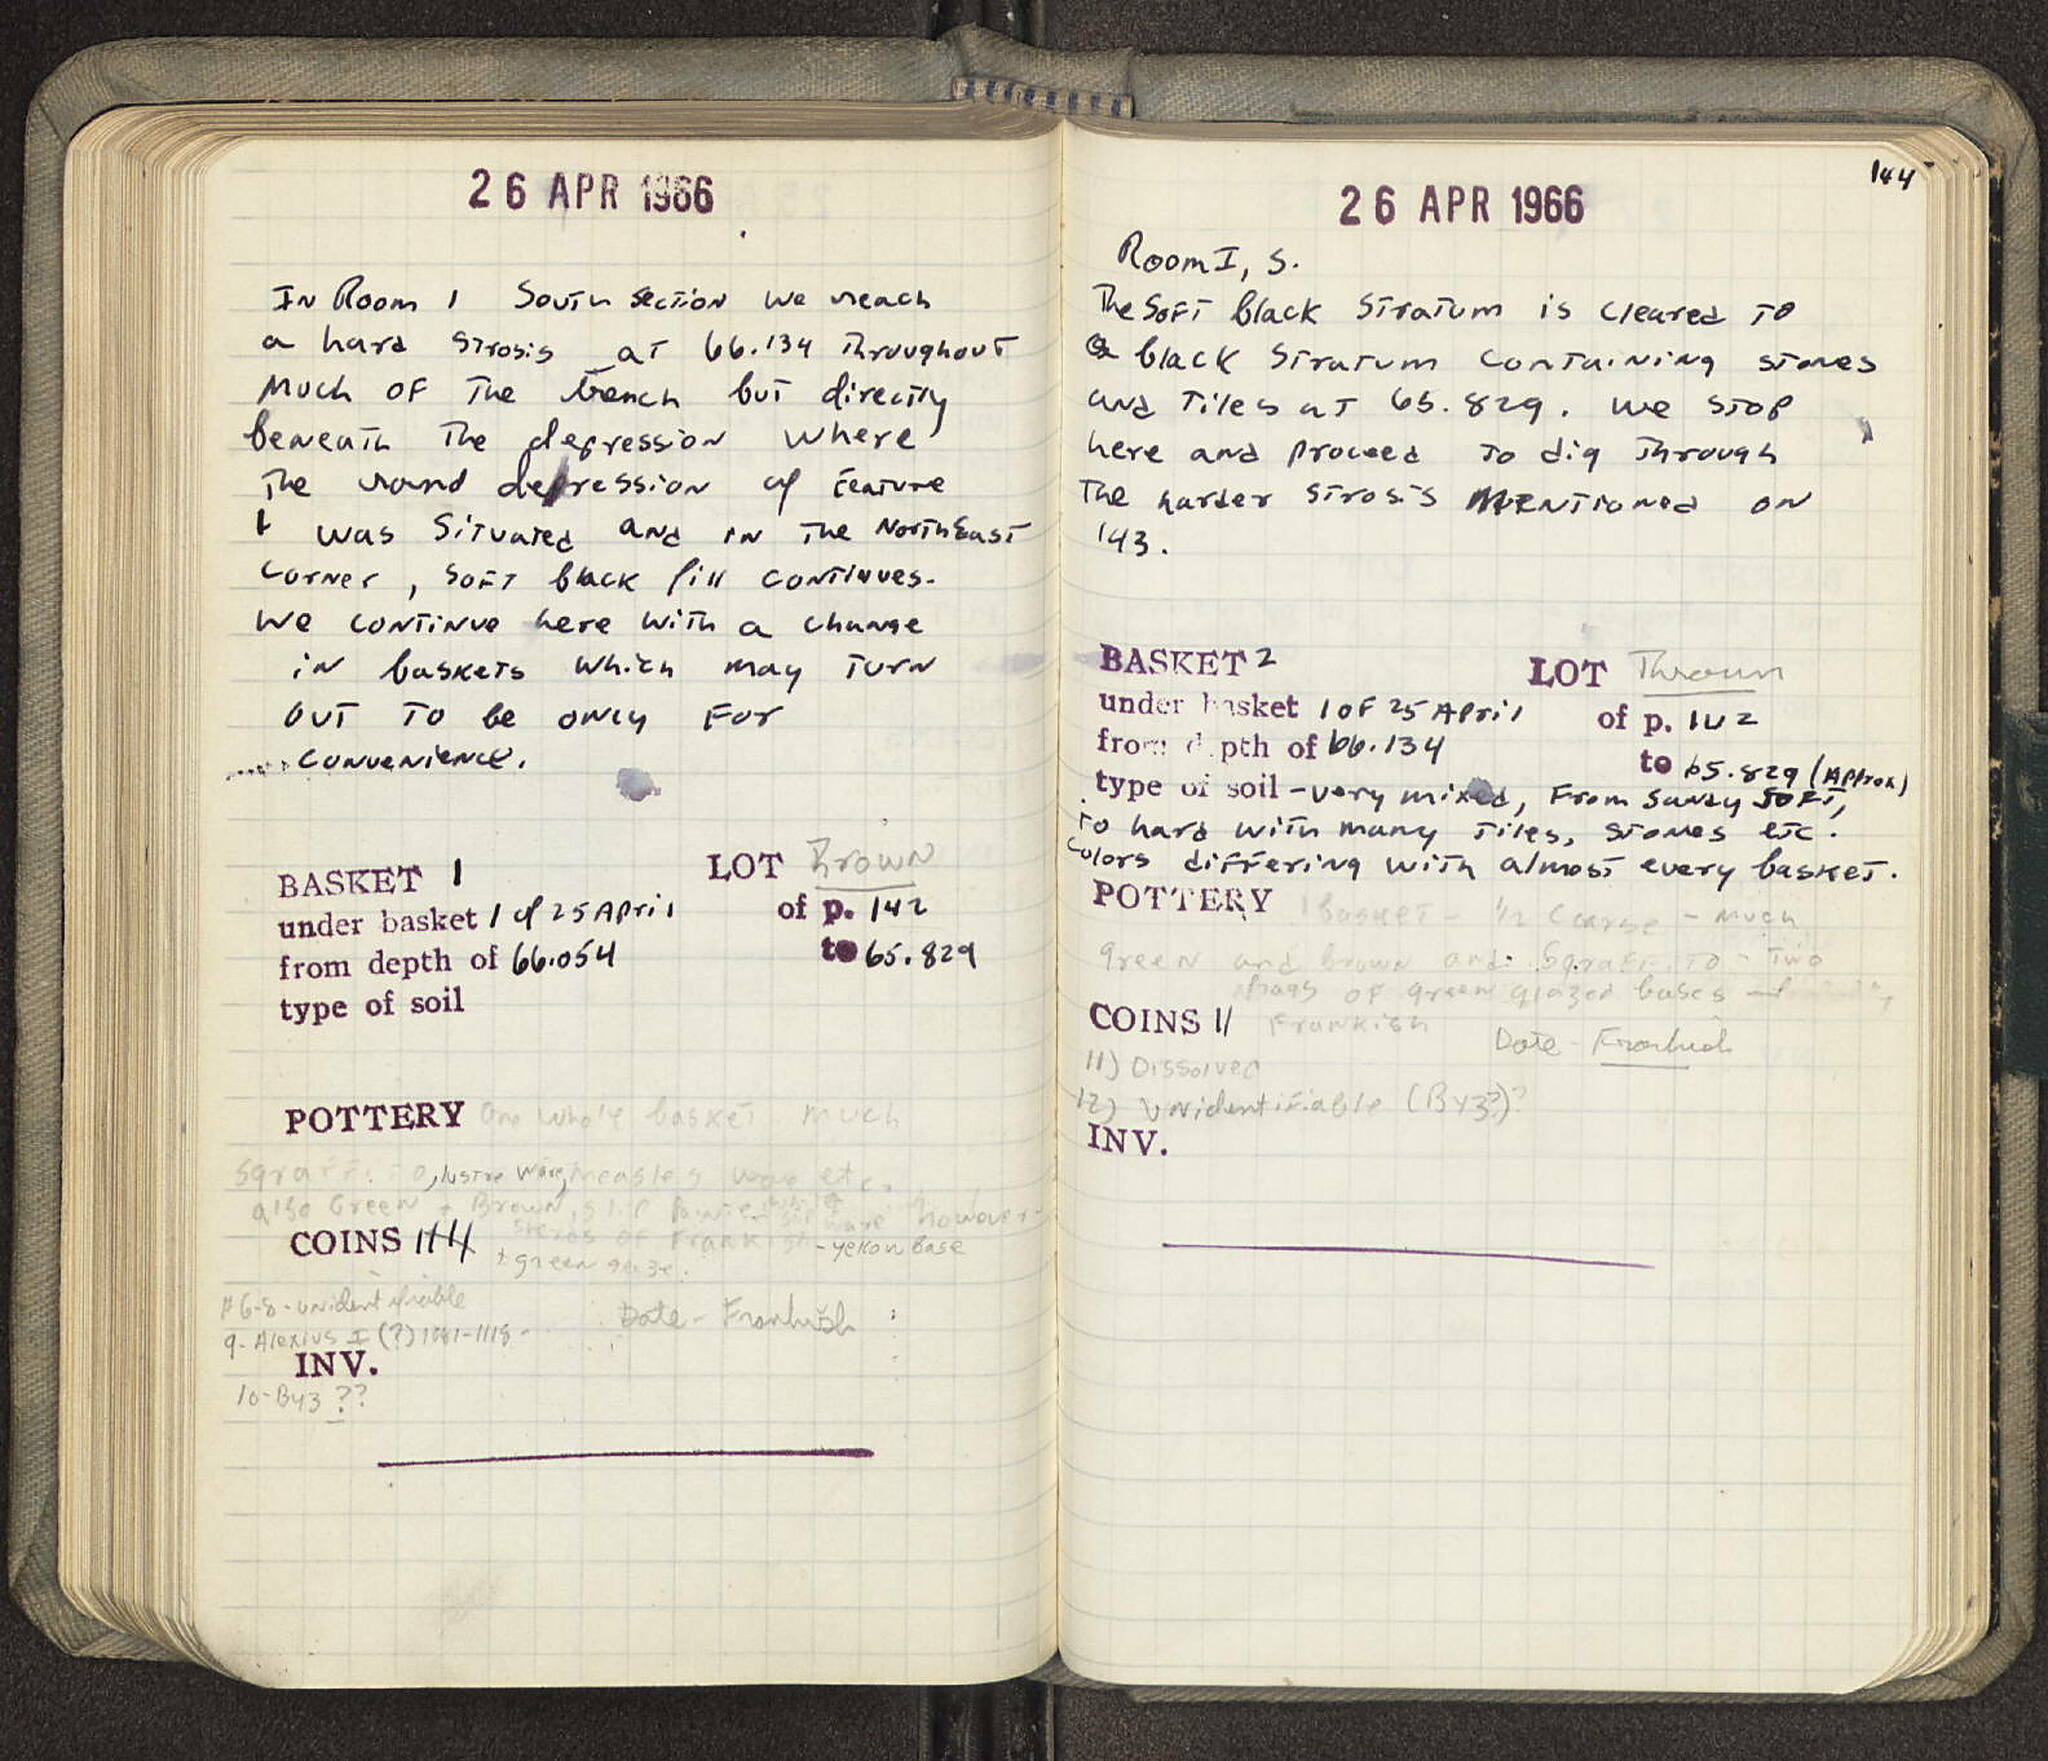 26 APR 1966
In Room 1 South section we reach
a hard strosis at 66.134 throughout
much of the trench but directly
beneath the depression where
the round depression of feature
1 was situated and in the NorthEast
corner, soft black fill continues.
We continue here with a change
in baskets which may turn
out to be only for
convenience.
BASKET 1 LOT Thrown
under basket 1 of 25 April of p. 142
from depth of 66.054 to 65.829
type of soil
POTTERY One whole basket much
Sgraffito, lustre ware, measles ware etc.
also Green + Brown, slip Painted ware however
COINS 1111 sherds of Frankish - yellow base
+ green glaze.
#6-8 - unidentifiable
Date - Frankish
9- Alexius I (?) 1081-1118-
INV.
10- Byz ??
144
26 APR 1966
Room I, S.
The soft black stratum is cleared to
a black stratum containing stones
and tiles at 65.829. We stop
here and proceed to dig through
the harder strosis mentioned on
143.
BASKET 2 LOT Thrown
under basket 1 of 25 April of p. 142
from depth of 66.134 to 65.829 (Approx)
type of soil - very mixed, from sandy soft,
to hard with many tiles, stones etc.
colors differing with almost every basket.
POTTERY 1 basket - 1/2 coarse - much
green and brown and Sgraffito - Two
frags of green glazed bases
COINS 11 Frankish
Date - Frankish
11) Dissolved
12) Unidentifiable (Byz?)?
INV.